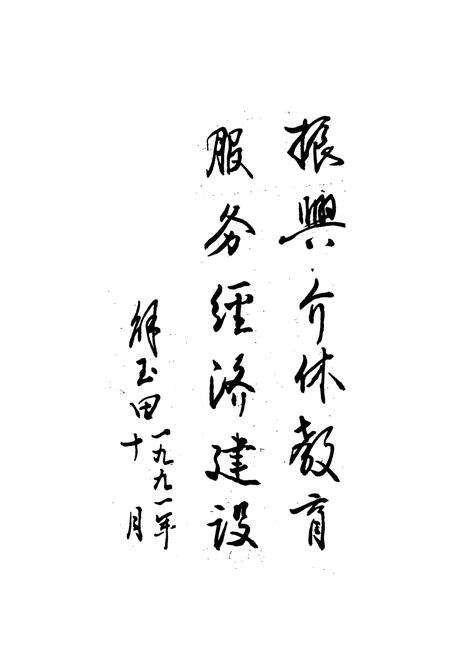 振興介休教育
服务經济建设
解玉田
一九九一年
十月